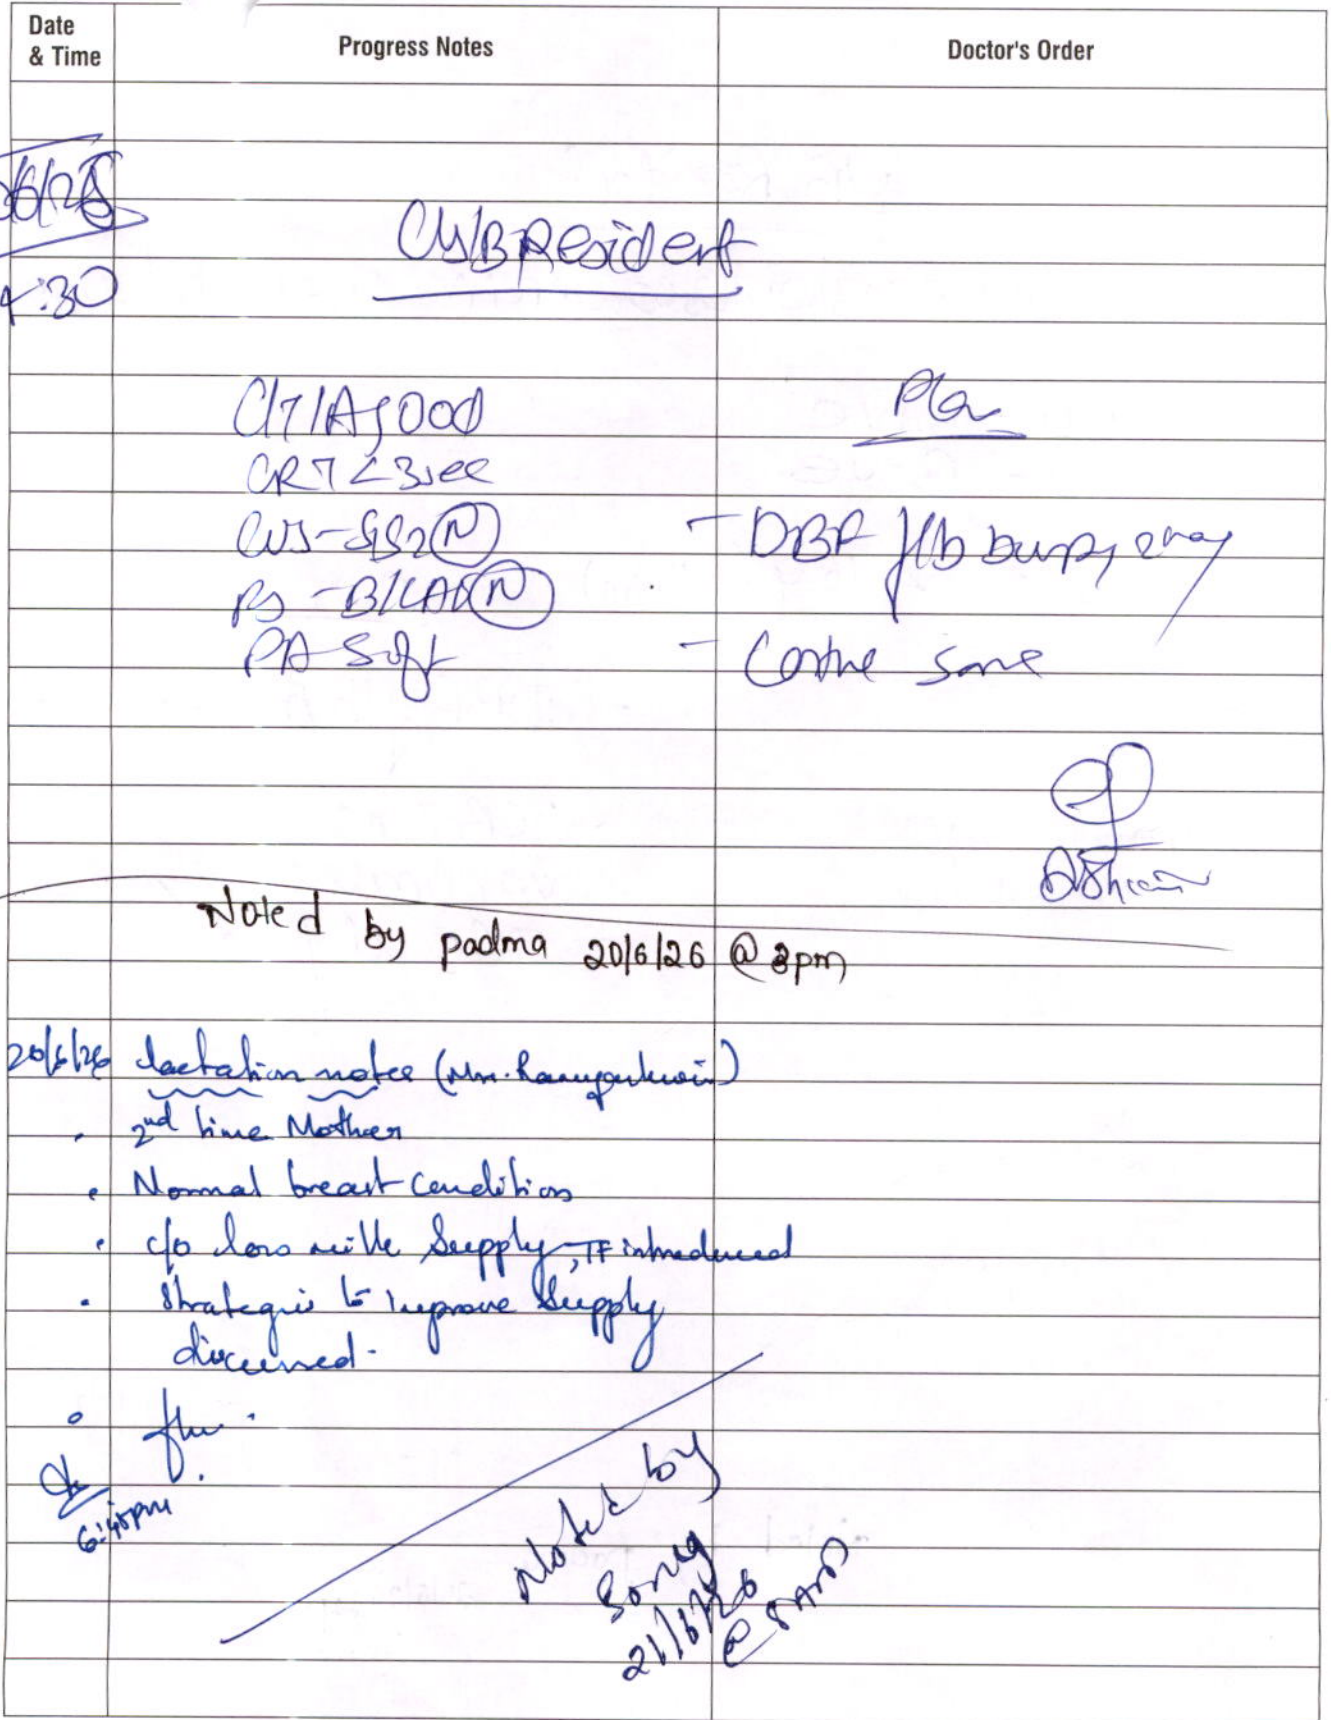 Date & Time
Progress Notes
Doctor's Order
/6/26
:30
C/S/B Resident
C/T/A good
CRT <3sec
CVS-S1S2 (N)
RS - B/LAE (N)
PA Soft
Plan
- DBF f/b burping
- Continue same
Noted by padma 20/6/26 @ 8pm
20/6/26 lactation notes
2nd time Mother
Normal breast Condition
c/o less milk Supply, TF introduced
Strategies to improve Supply
discussed.
6:45pm
Noted by
21/6/26
@ 8AM